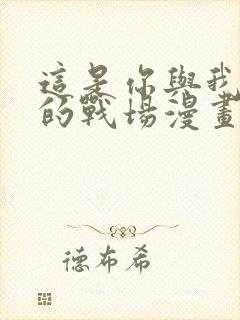 這是你與我
的戰場漫畫
德布希